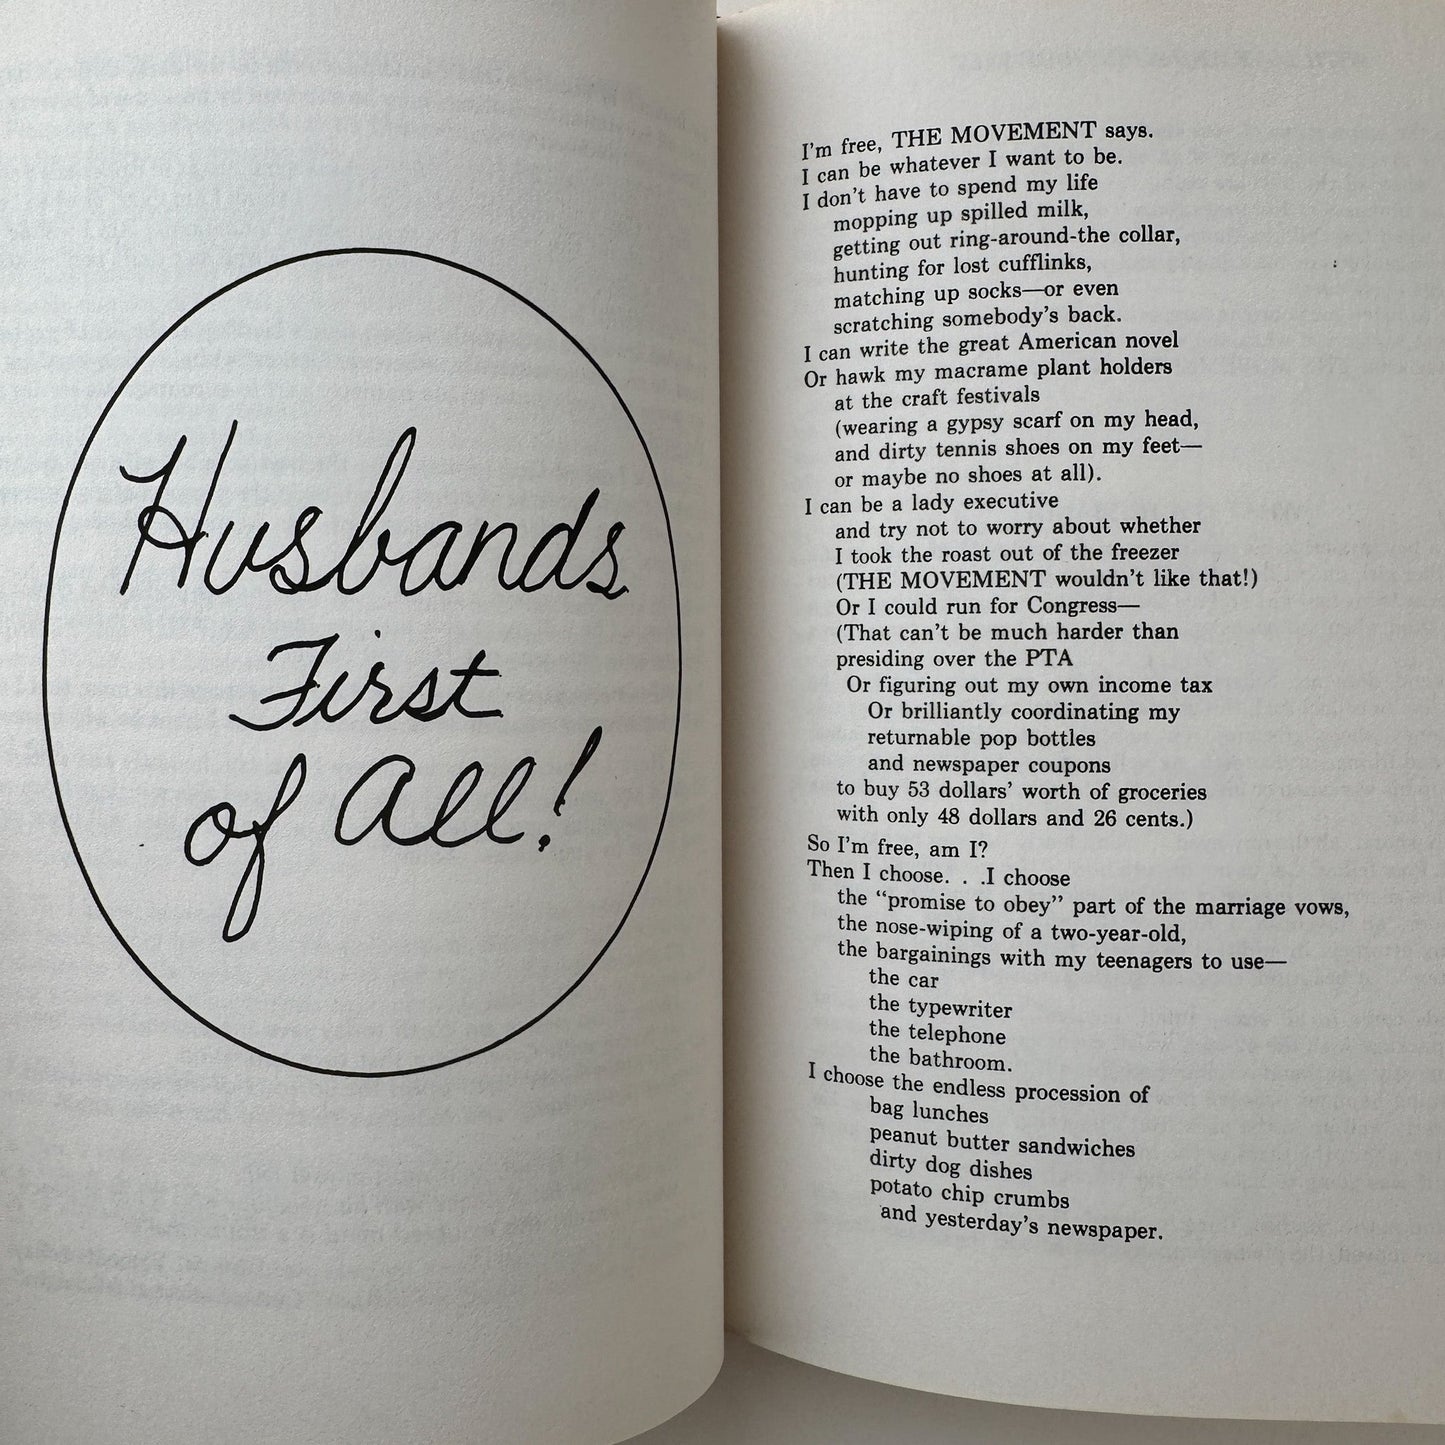 Husbands
First
of All!
I'm free, THE MOVEMENT says.
I can be whatever I want to be.
I don't have to spend my life
mopping up spilled milk,
getting out ring-around-the collar,
hunting for lost cufflinks,
matching up socks—or even
scratching somebody's back.
I can write the great American novel
Or hawk my macrame plant holders
at the craft festivals
(wearing a gypsy scarf on my head,
and dirty tennis shoes on my feet—
or maybe no shoes at all).
I can be a lady executive
and try not to worry about whether
I took the roast out of the freezer
(THE MOVEMENT wouldn't like that!)
Or I could run for Congress—
(That can't be much harder than
presiding over the PTA
Or figuring out my own income tax
Or brilliantly coordinating my
returnable pop bottles
and newspaper coupons
to buy 53 dollars' worth of groceries
with only 48 dollars and 26 cents.)
So I'm free, am I?
Then I choose. . .I choose
the "promise to obey" part of the marriage vows,
the nose-wiping of a two-year-old,
the bargainings with my teenagers to use—
the car
the typewriter
the telephone
the bathroom.
I choose the endless procession of
bag lunches
peanut butter sandwiches
dirty dog dishes
potato chip crumbs
and yesterday's newspaper.